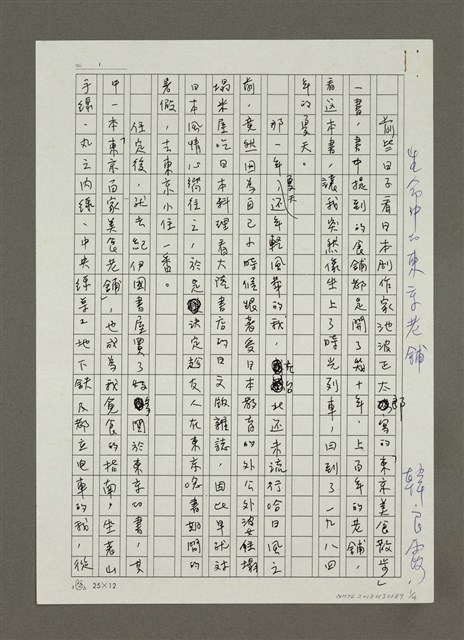 生命中的東京老舖
韓良露
前些日子看日本劇作家池波正太郎寫的「東京美食散步」
一書,書中提到的食舖都是開了數十年、上百年的老舖,
看這本書,讓我突然像坐上了時光列車,回到了一九八四
年的夏天。
那一年夏天,還年輕風華的我,在台北還未流行哈日風之
前,竟然因為自己小時候跟著受日本教育的外公外婆住榻
榻米屋吃日本料理看大流書店的日文版雜誌,因此早就對
日本風情心嚮往之,於是決定趁友人在東京唸書如間的
暑假,去東京小住一番。
住定後,就去紀伊國書屋買了好多關於東京的書,其
中一本「東京百家美食老舖」,也成為我覓食的指南,坐著山
手線、丸之內線、中央線等工地下鉄及都立電車的我,從
25×12